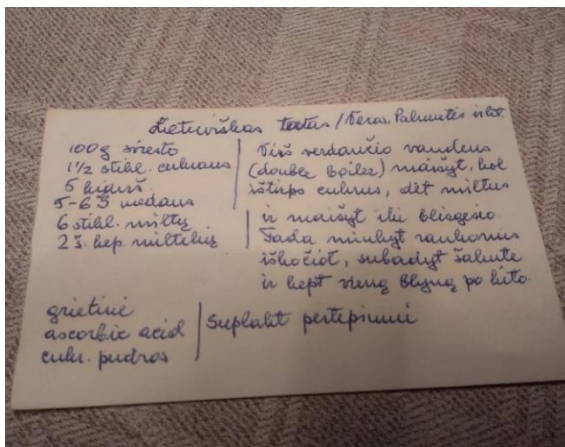 Lietuviškas tortas / Veras, Palmutės
100 g sviesto
1½ stikl. cukraus
5 kiauš.
5-6 Š medaus
6 stikl. miltų
2 š. kep. miltelių
Virš verdančio vandens
(double boiler) maišyt, kol
ištirps cukrus, dėt miltus
ir maišyt iki
Tada minkyt rankomis
iškočiot, subadyt šakute
ir kept vieną blyną po kito.
grietinė
ascorbic acid
cukr. pudros
Suplakt pertepimui